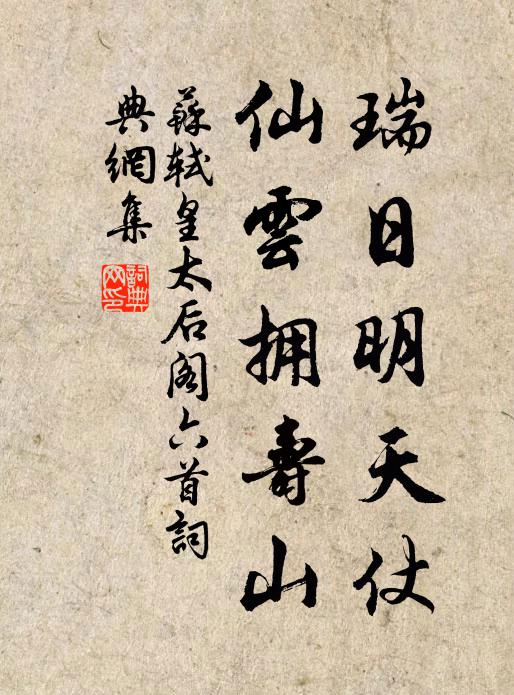 瑞日明天仗
仙雲拥壽山
蘇軾皇太后阁六首詞
典網集
詞典
网印